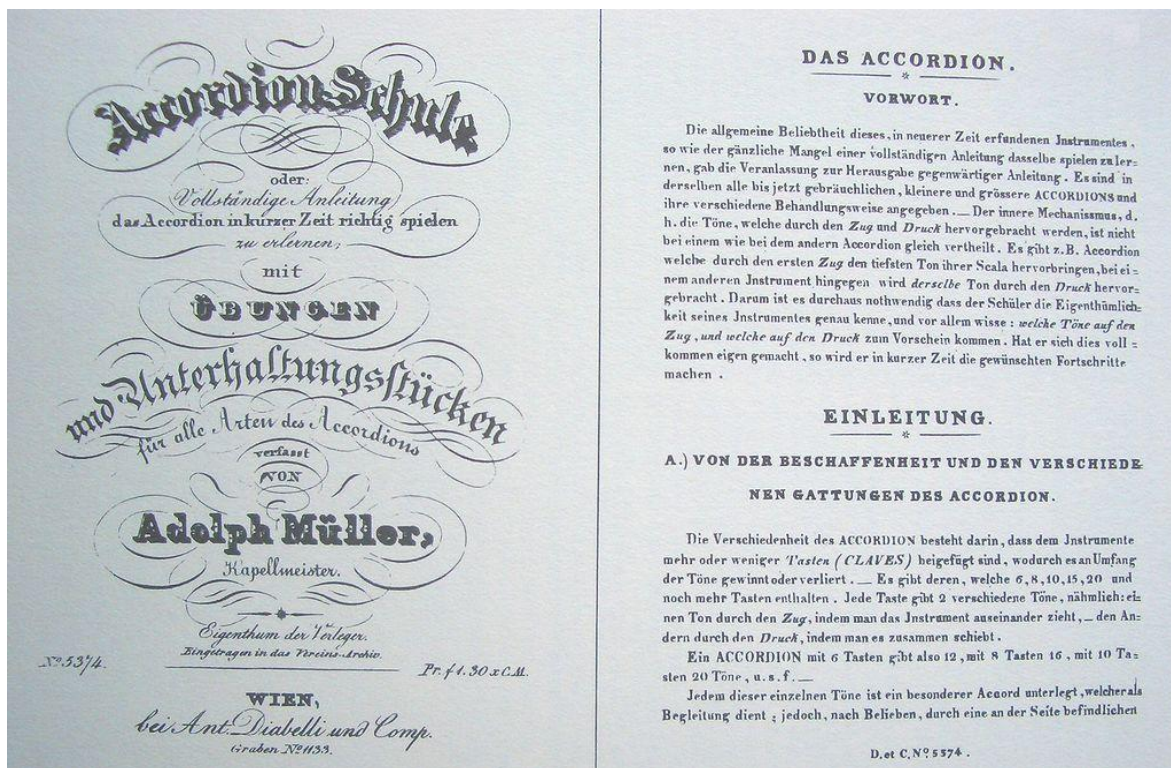 Accordion-Schule
oder:
Vollständige Anleitung
das Accordion in kurzer Zeit richtig spielen
zu erlernen,
mit
ÜBUNGEN
und Unterhaltungsstücken
für alle Arten des Accordions
verfasst
VON
Adolph Müller,
Kapellmeister.
Eigenthum der Verleger.
Eingetragen in das Vereins-Archiv.
No. 5374.
Pr. f 1. 30 x C.M.
WIEN,
bei Ant. Diabelli und Comp.
Graben No. 1133.
DAS ACCORDION.
VORWORT.
Die allgemeine Beliebtheit dieses, in neuerer Zeit erfundenen Jnstrumentes,
so wie der gänzliche Mangel einer vollständigen Anleitung dasselbe spielen zu ler=
nen, gab die Veranlassung zur Herausgabe gegenwärtiger Anleitung. Es sind in
derselben alle bis jetzt gebräuchlichen, kleinere und grössere ACCORDIONS und
ihre verschiedene Behandlungsweise angegeben. — Der innere Mechanissmus, d.
h. die Töne, welche durch den Zug und Druck hervorgebracht werden, ist nicht
bei einem wie bei dem andern Accordion gleich vertheilt. Es gibt z.B. Accordion
welche durch den ersten Zug den tiefsten Ton ihrer Scala hervorbringen, bei ei=
nem anderen Jnstrument hingegen wird derselbe Ton durch den Druck hervor=
gebracht. Darum ist es durchaus nothwendig dass der Schüler die Eigenthümlich=
keit seines Jnstrumentes genau kenne, und vor allem wisse: welche Töne auf den
Zug, und welche auf den Druck zum Vorschein kommen. Hat er sich dies voll=
kommen eigen gemacht, so wird er in kurzer Zeit die gewünschten Fortschritte
machen.
EINLEITUNG.
A.) VON DER BESCHAFFENHEIT UND DEN VERSCHIEDE
NEN GATTUNGEN DES ACCORDION.
Die Verschiedenheit des ACCORDION besteht darin, dass dem Jnstrumente
mehr oder weniger Tasten (CLAVES) beigefügt sind, wodurch es an Umfang
der Töne gewinnt oder verliert. — Es gibt deren, welche 6, 8, 10, 15, 20 und
noch mehr Tasten enthalten. Jede Taste gibt 2 verschiedene Töne, nähmlich: ei=
nen Ton durch den Zug, indem man das Jnstrument auseinander zieht, — den An=
dern durch den Druck, indem man es zusammen schiebt.
Ein ACCORDION mit 6 Tasten gibt also 12, mit 8 Tasten 16, mit 10 Ta=
sten 20 Töne, u.s.f. —
Jedem dieser einzelnen Töne ist ein besonderer Accord unterlegt, welcher als
Begleitung dient; jedoch, nach Belieben, durch eine an der Seite befindlichen
D. et C. No. 5374.